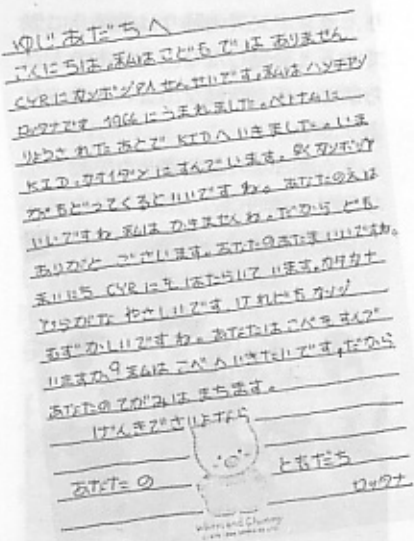 ゆじあだちへ
こくにちは,私はこどもではありません
CYRにカンボジア人せんせいです,私はハンチャン
ロックナです 1966にうまれました。ベトナムに
りょうされたあとで KIDへいきました。いま
KID,カオイダンにすんでいます。早くカンボジア
がもどってくるといいですね。あなたのえは
いいですね 私はかきませんね。だから ども
ありがと ございます。あなたのあたまいいですね。
まいにち CYRにも はたらいています。カタカナ
ひらがな やさしいです,けれども カンジ
むずかしいですね。あなたはこべをすんで
いますか? 私はこべへいきたいです,だから
あなたのてがみは まちます。
げんきでさいよなら
あなたの ともだち
ロックナ